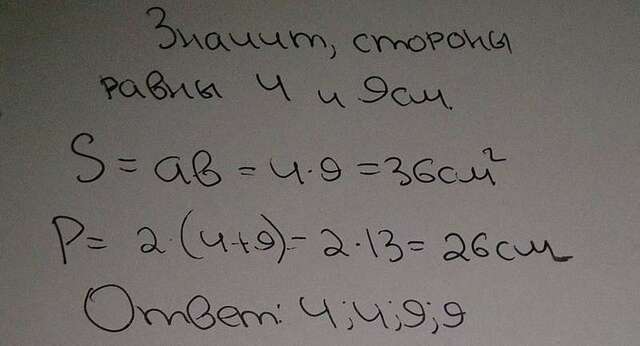 Значит, стороны
равны 4 и 9см.
S = ab = 4·9 = 36см²
P = 2·(4+9) = 2·13 = 26см
Ответ: 4;4;9;9